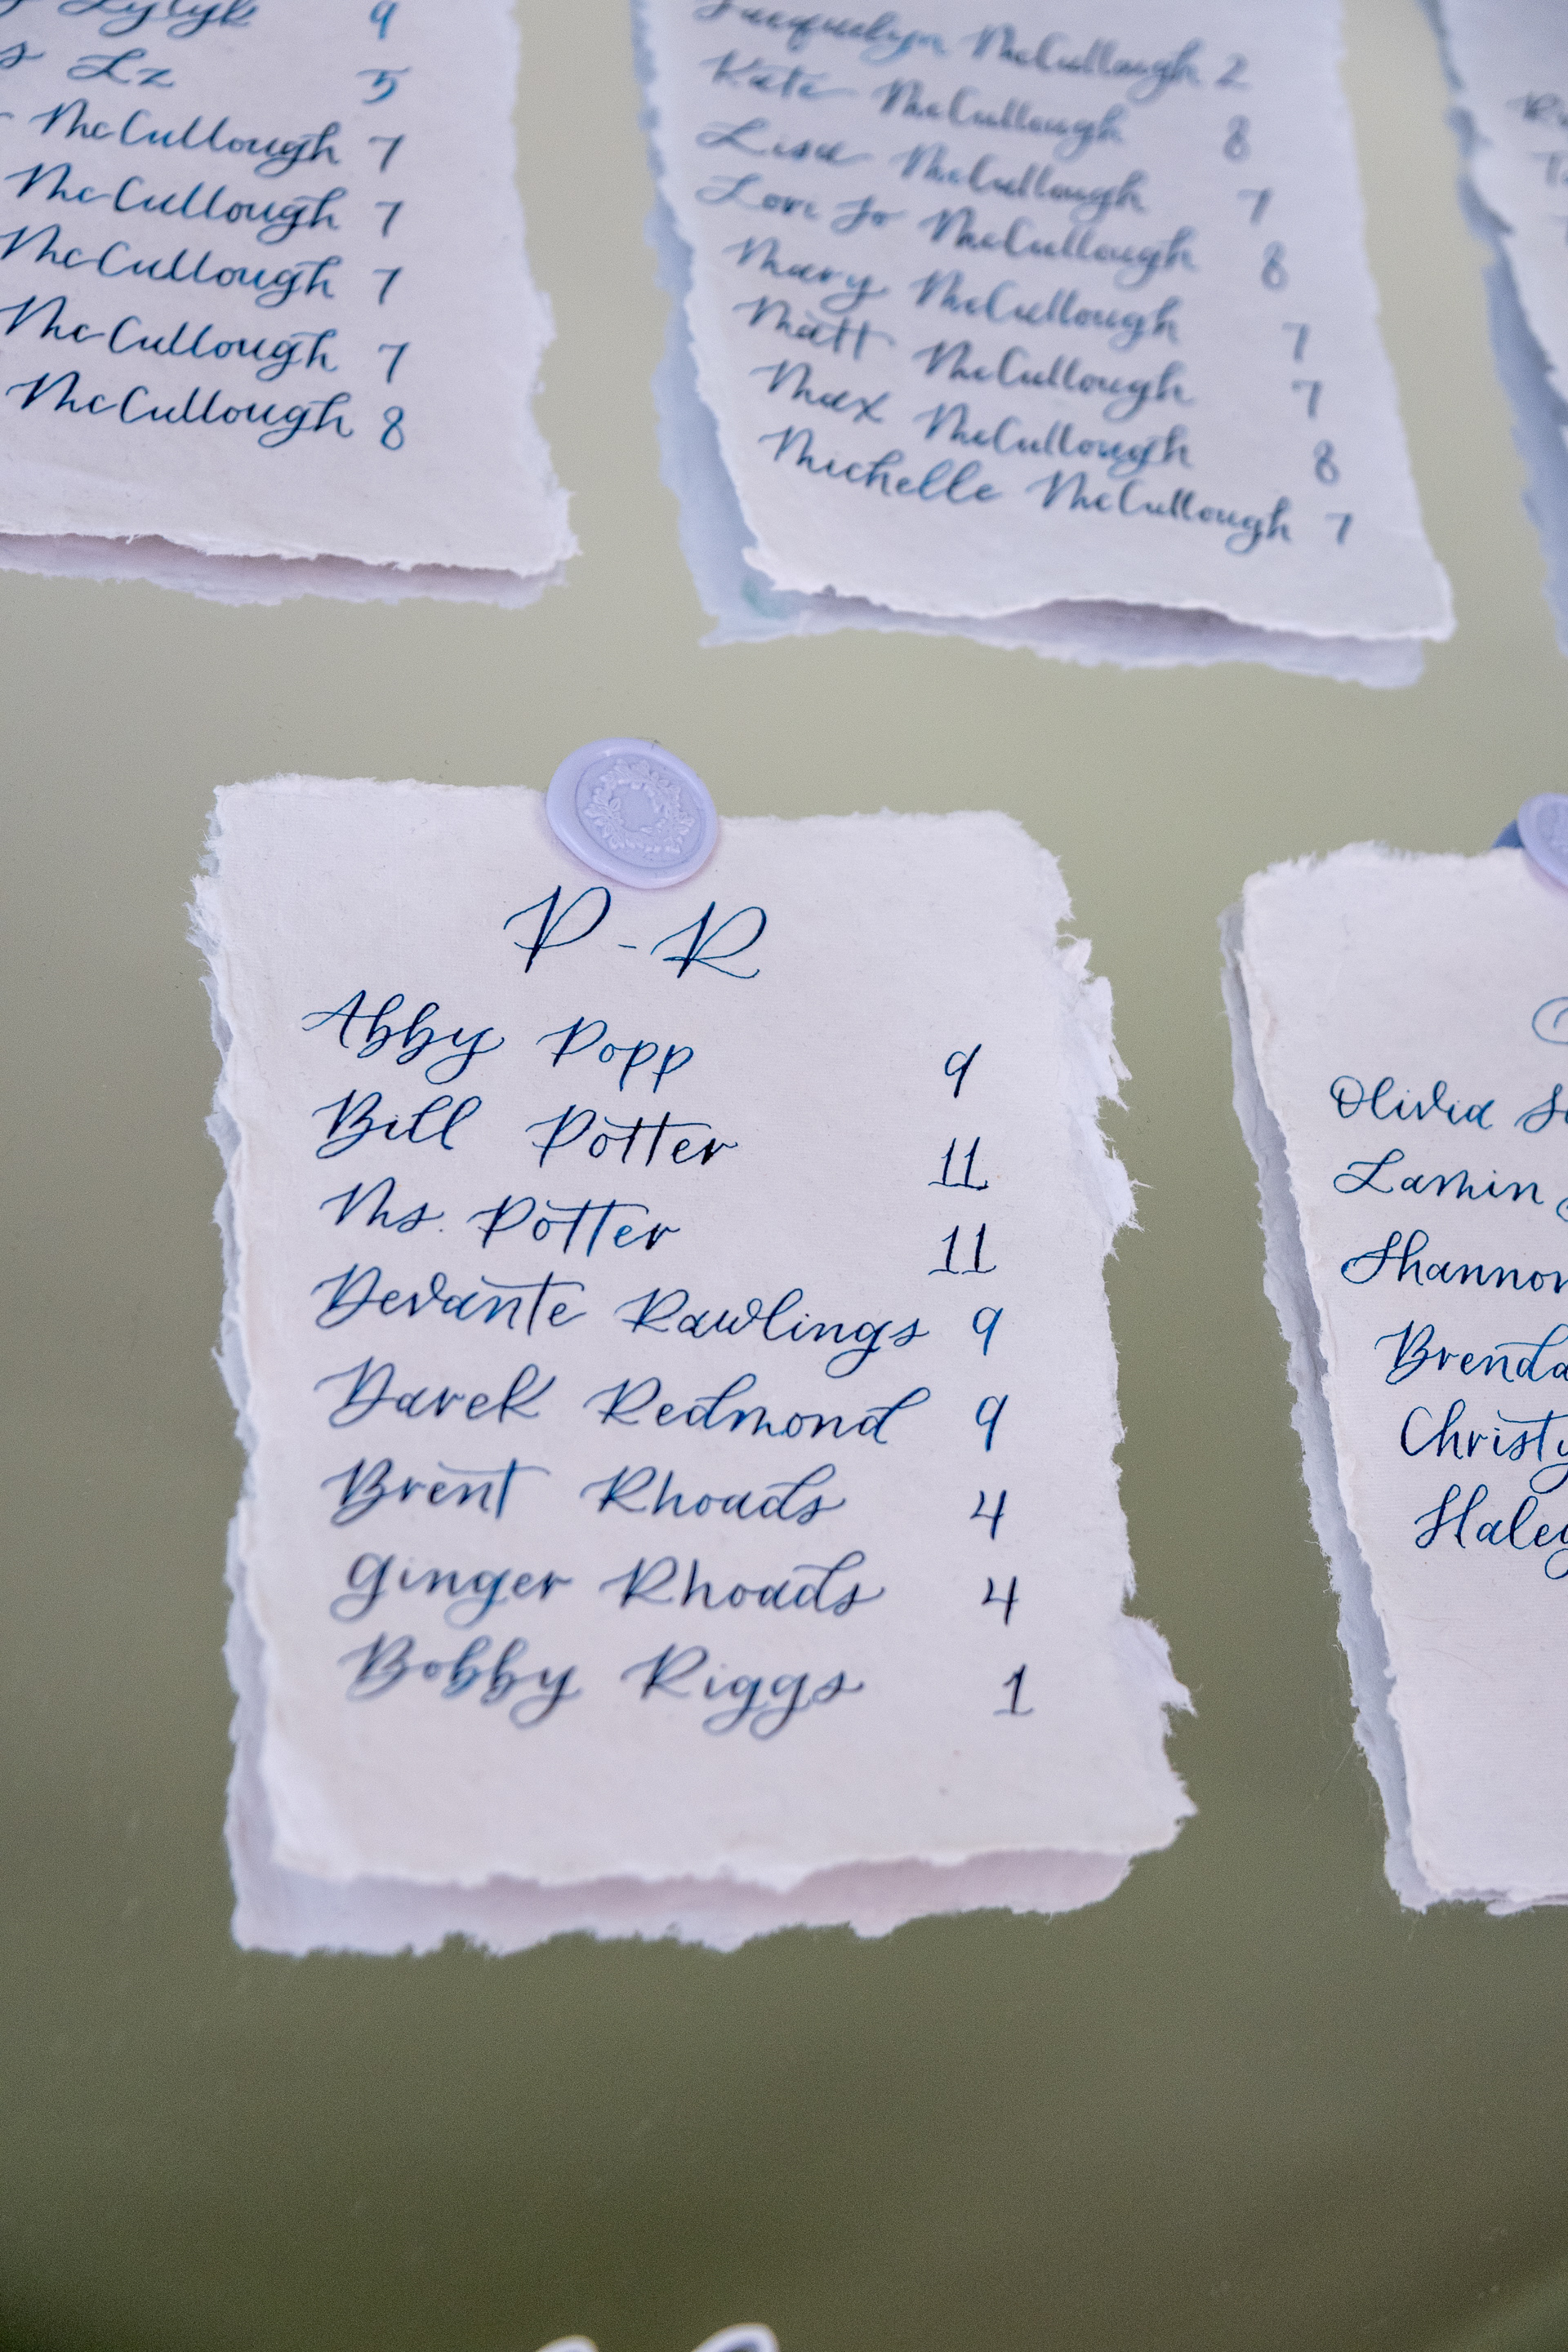 9
Lz 5
McCullough 7
McCullough 7
McCullough 7
McCullough 7
McCullough 8
Jacquelyn McCullough 2
Kate McCullough 8
Lisa McCullough 7
Lori Jo McCullough 8
Mary McCullough 7
Matt McCullough 7
Max McCullough 8
Michelle McCullough 7
P-R
Abby Popp 9
Bill Potter 11
Ms. Potter 11
Devante Rawlings 9
Darek Redmond 9
Brent Rhoads 4
Ginger Rhoads 4
Bobby Riggs 1
Olivia
Lamin
Shannon
Brenda
Christy
Haley